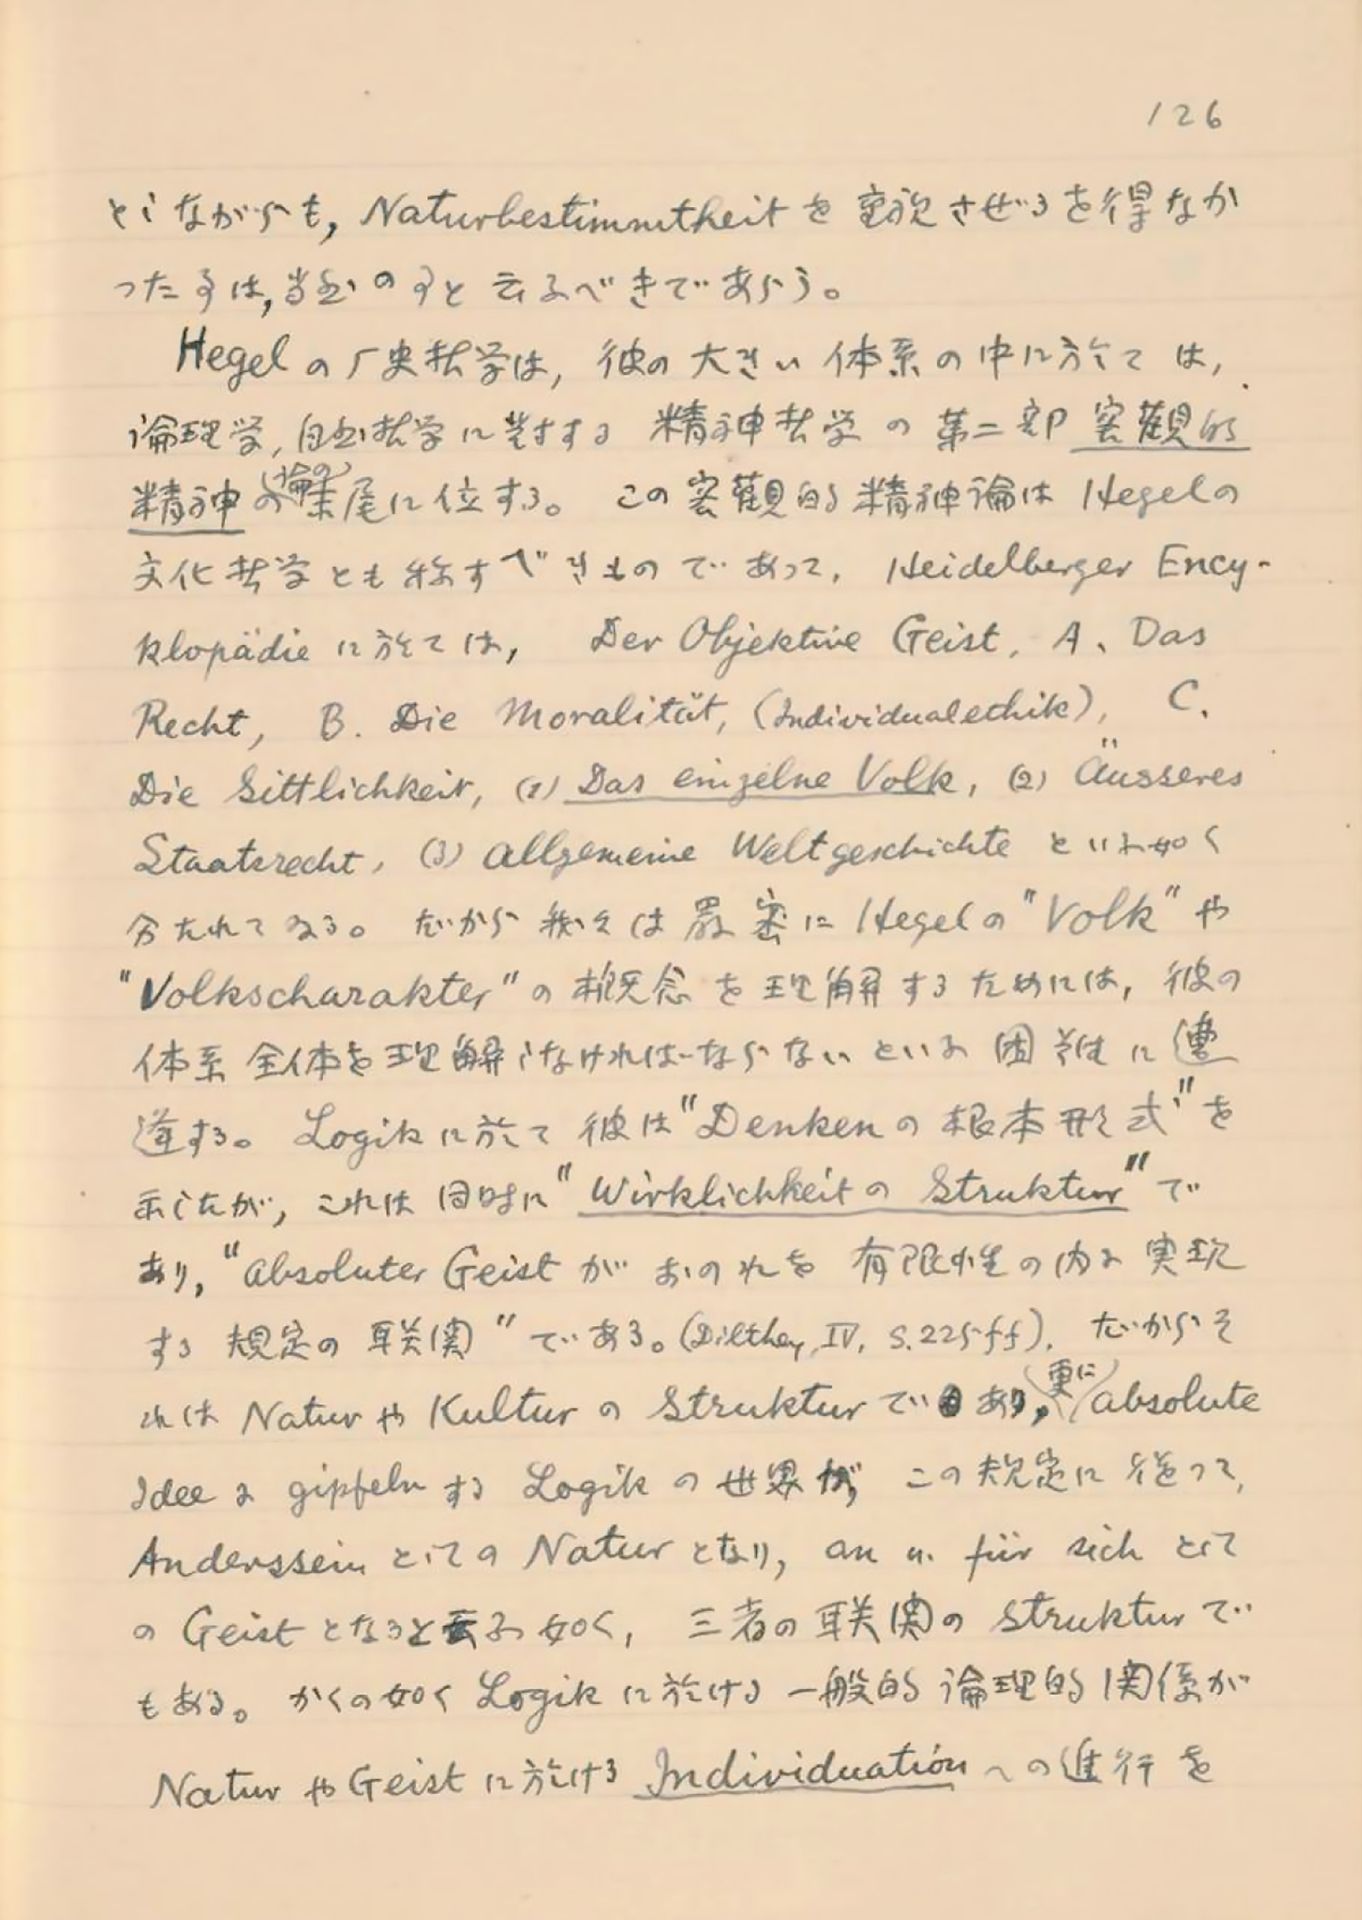 126
としながらも, Naturbestimmtheit を 変説させざるを得なか
った事は, 当然の事と云ふべきであらう。
Hegel の歴史哲学は, 彼の大きい体系の中に於ては,
論理学, 自然哲学に対する 精神哲学の第二部 客観的
精神(論の)の末尾に位する。この客観的精神論は Hegelの
文化哲学とも称すべきものであって, Heidelberger Ency-
klopädie に於ては, Der Objektive Geist, A. Das
Recht, B. Die Moralität, (Individualethik), C.
Die Sittlichkeit, (1) Das einzelne Volk, (2) Äusseres
Staatsrecht, (3) allgemeine Weltgeschichte といふ如く
分たれてゐる。だから我々は厳密に Hegel の "Volk" や
"Volkscharakter" の概念を理解するためには, 彼の
体系全体を理解しなければならないといふ困難に遭
逢する。Logik に於て彼は "Denken の根本形式" を
示したが, これは同時に "Wirklichkeit の Struktur" で
あり, "absoluter Geist がおのれを有限性の内に実現
する規定の聯関" である。(Dilthey, IV, S.225ff). だからそ
れは Natur や Kultur の Struktur であり, (更に) absolute
Idee に gipfeln する Logik の世界が, この規定に従って,
Anderssein としての Natur となり, an u. für sich として
の Geist となると云ふ如く, 三者の聯関の Struktur で
もある。かくの如く Logik に於ける一般的論理的関係が
Natur や Geist に於ける Individuation への進行を